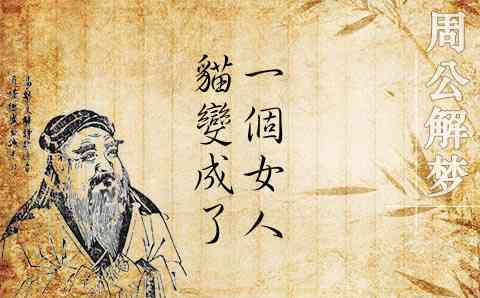 周公解梦
貓變成了
一個女人